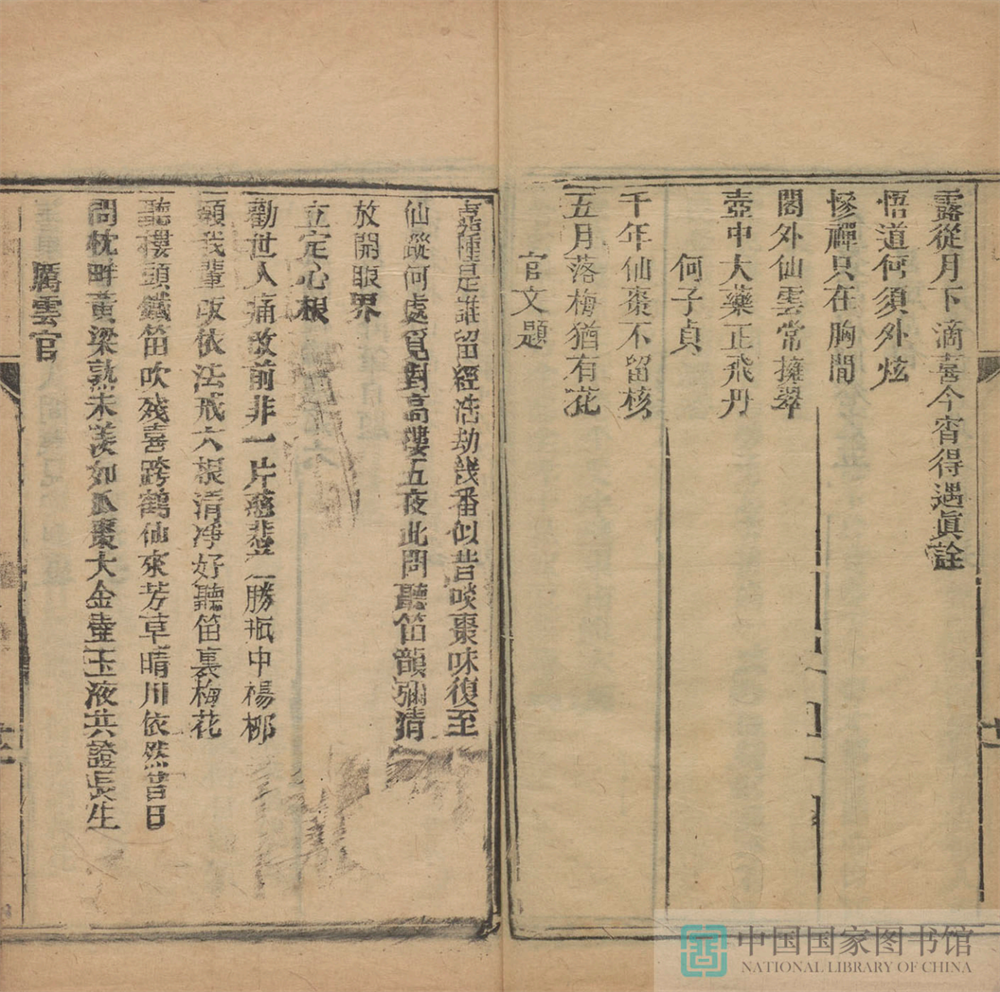 露從月下滴喜今宵得遇眞詮
悟道何須外炫
修禪只在胸間
閣外仙雲常擁翠
壺中大藥正飛丹
何子貞
千年仙棗不留核
五月落梅猶有花
官文題
嘉種是誰留經浩劫幾番似昔啖棗味復至
仙蹤何處覓對高樓五夜此間聽笛韻彌清
放開眼界
立定心根
勸世人痛改前非一片慈悲勝瓶中楊柳
願我輩改依法戒六根清净好聽笛裏梅花
聽樓頭鐵笛吹殘喜跨鶴仙來芳草晴川依然昔日
問枕畔黃粱熟未羨如瓜棗大金壺玉液共證長生
厲雲官
中国国家图书馆
NATIONAL LIBRARY OF CHINA